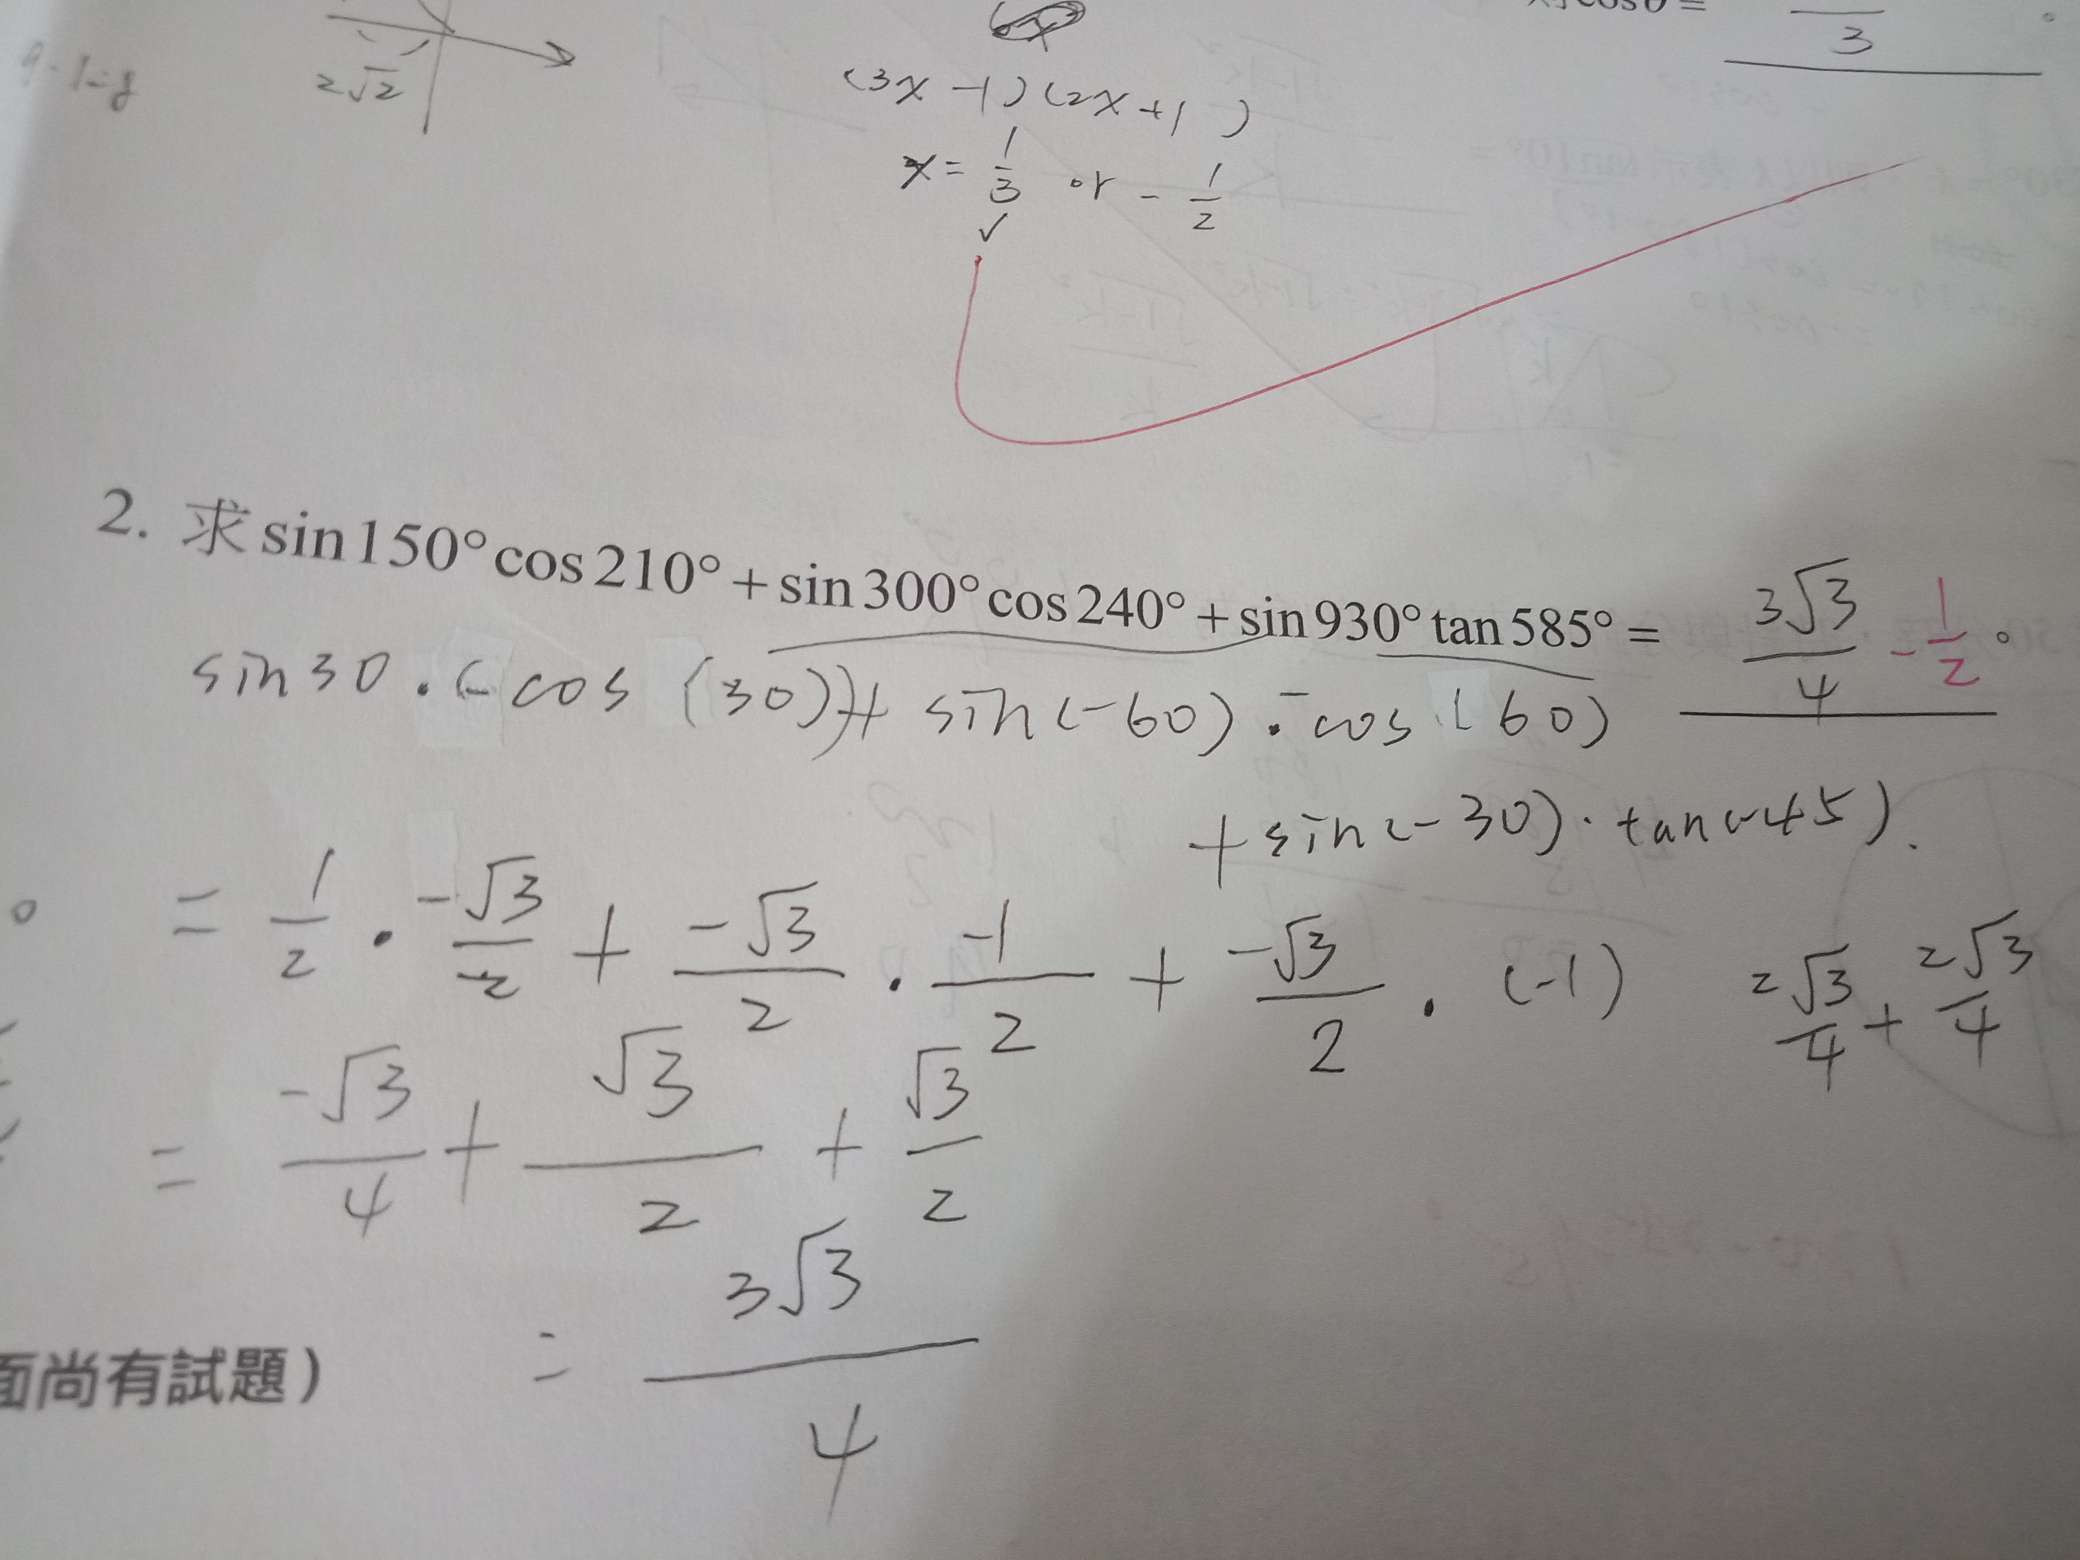 則cosθ=
3
2√2
(3x-1)(2x+1)
x= 1/3 or - 1/2
✓
2. 求 sin150°cos210°+sin300°cos240°+sin930°tan585°= 3√3/4 - 1/2 。
sin30·(-cos(30))+ sin(-60)·-cos(60)
+sin(-30)·tan(-45).
= 1/2 · -√3/2 + -√3/2 · -1/2 + -√3/2 · (-1)
2√3/4 + 2√3/4
= -√3/4 + √3/2 + √3/2
= 3√3/4
面尚有試題)